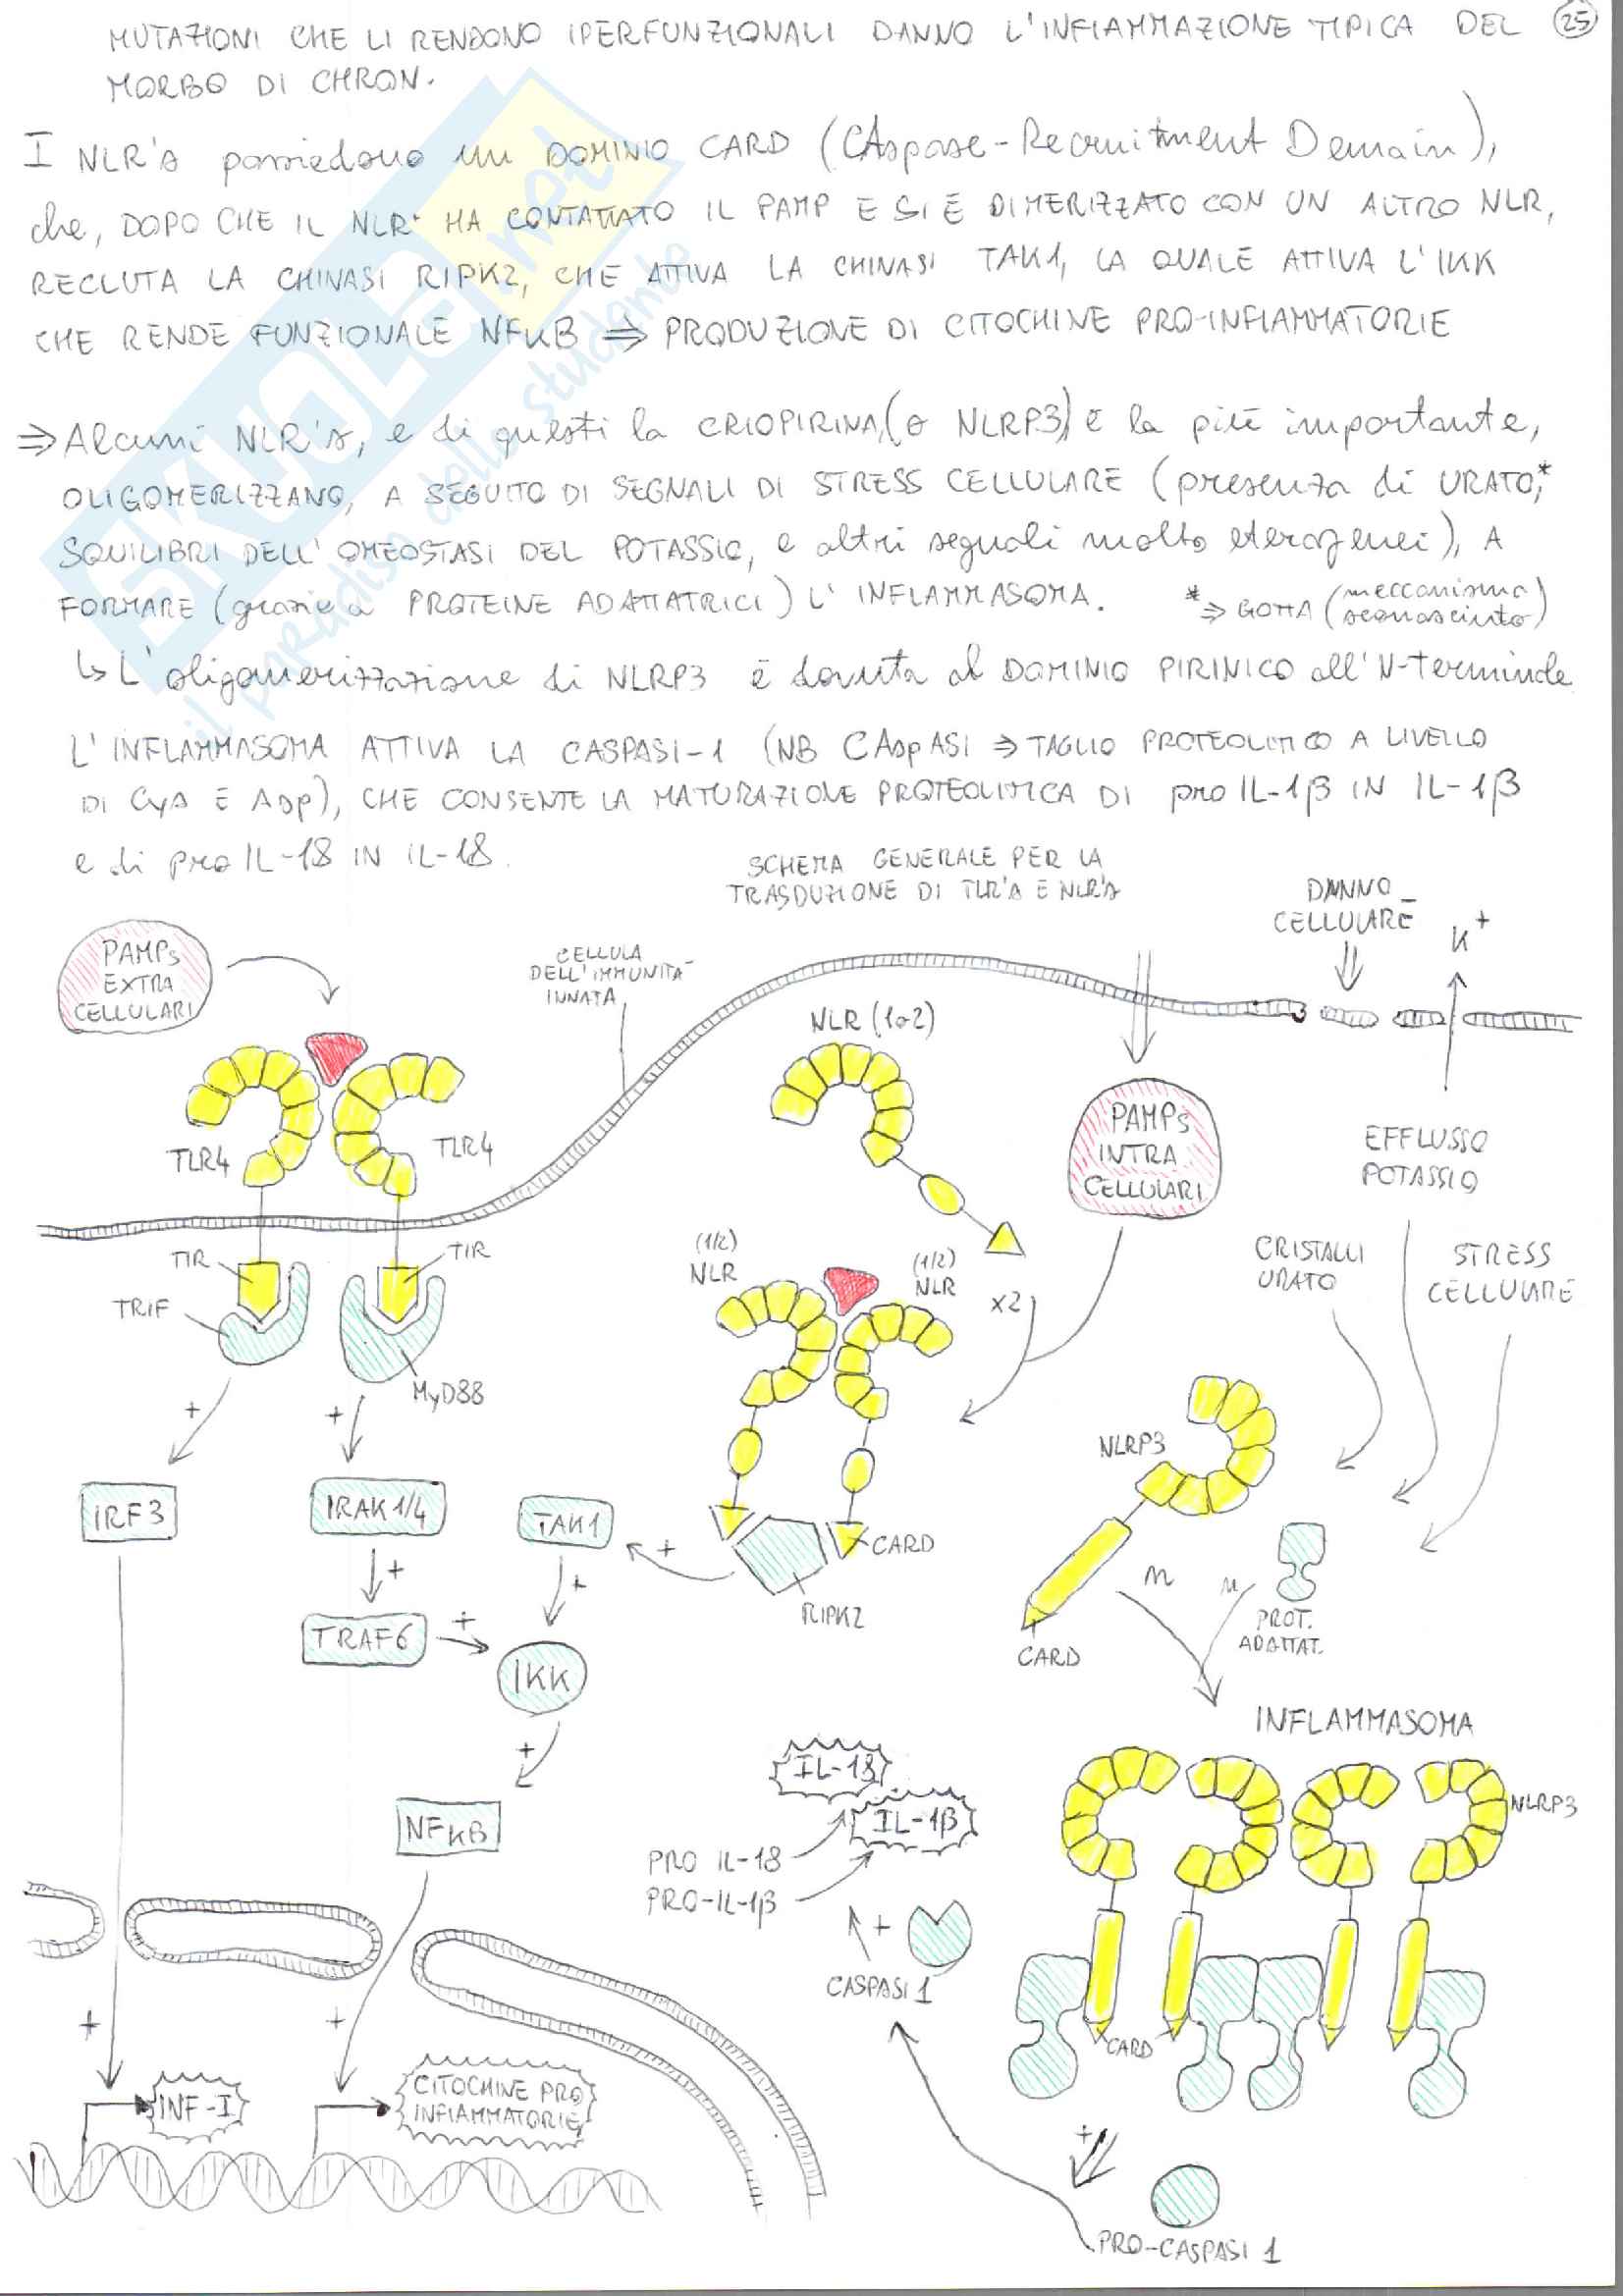 MUTAZIONI CHE LI RENDONO IPERFUNZIONALI DANNO L'INFIAMMAZIONE TIPICA DEL 25
MORBO DI CHRON.
I NLR's possiedono un DOMINIO CARD (CAspase-Recruitment Domain),
che, DOPO CHE IL NLR HA CONTATTATO IL PAMP E SI È DIMERIZZATO CON UN ALTRO NLR,
RECLUTA LA CHINASI RIPK2, CHE ATTIVA LA CHINASI TAK1, LA QUALE ATTIVA L'IKK
CHE RENDE FUNZIONALE NFKB ⇒ PRODUZIONE DI CITOCHINE PRO-INFIAMMATORIE
⇒ Alcuni NLR's, e di questi la CRIOPIRINA (o NLRP3) è la più importante,
OLIGOMERIZZANO, A SEGUITO DI SEGNALI DI STRESS CELLULARE (presenza di URATO,*
SQUILIBRI DELL'OMEOSTASI DEL POTASSIO, e altri segnali molto eterogenei), A
FORMARE (grazie a PROTEINE ADATTATRICI) L'INFLAMMASOMA. * ⇒ GOTTA (meccanismo sconosciuto)
↳ L'oligomerizzazione di NLRP3 è dovuta al DOMINIO PIRINICO all'N-Terminale
L'INFLAMMASOMA ATTIVA LA CASPASI-1 (NB CAspASI ⇒ TAGLIO PROTEOLITICO A LIVELLO
DI Cys E Asp), CHE CONSENTE LA MATURAZIONE PROTEOLITICA DI pro IL-1β IN IL-1β
e di pro IL-18 IN IL-18.
SCHEMA GENERALE PER LA
TRASDUZIONE DI TLR's E NLR's
DANNO
CELLULARE
K+
PAMPs
EXTRA
CELLULARI
CELLULA
DELL'IMMUNITÀ
INNATA
NLR (1o2)
PAMPs
INTRA
CELLULARI
EFFLUSSO
POTASSIO
TLR4
TLR4
TIR
TIR
TRIF
MyD88
(1/2)
NLR
(1/2)
NLR
x2
CRISTALLI
URATO
STRESS
CELLULARE
+
+
NLRP3
IRF3
IRAK1/4
TAK1
+
CARD
RIPK2
+
+
TRAF6
+
IKK
n
n
PROT.
ADATTAT.
CARD
+
INFLAMMASOMA
NFKB
IL-18
IL-1β
PRO IL-18
PRO-IL-1β
NLRP3
+
CASPASI 1
CARD
+
+
INF-I
CITOCHINE PRO
INFIAMMATORIE
+
PRO-CASPASI 1
SKUOLA.net
il paradiso dello studente